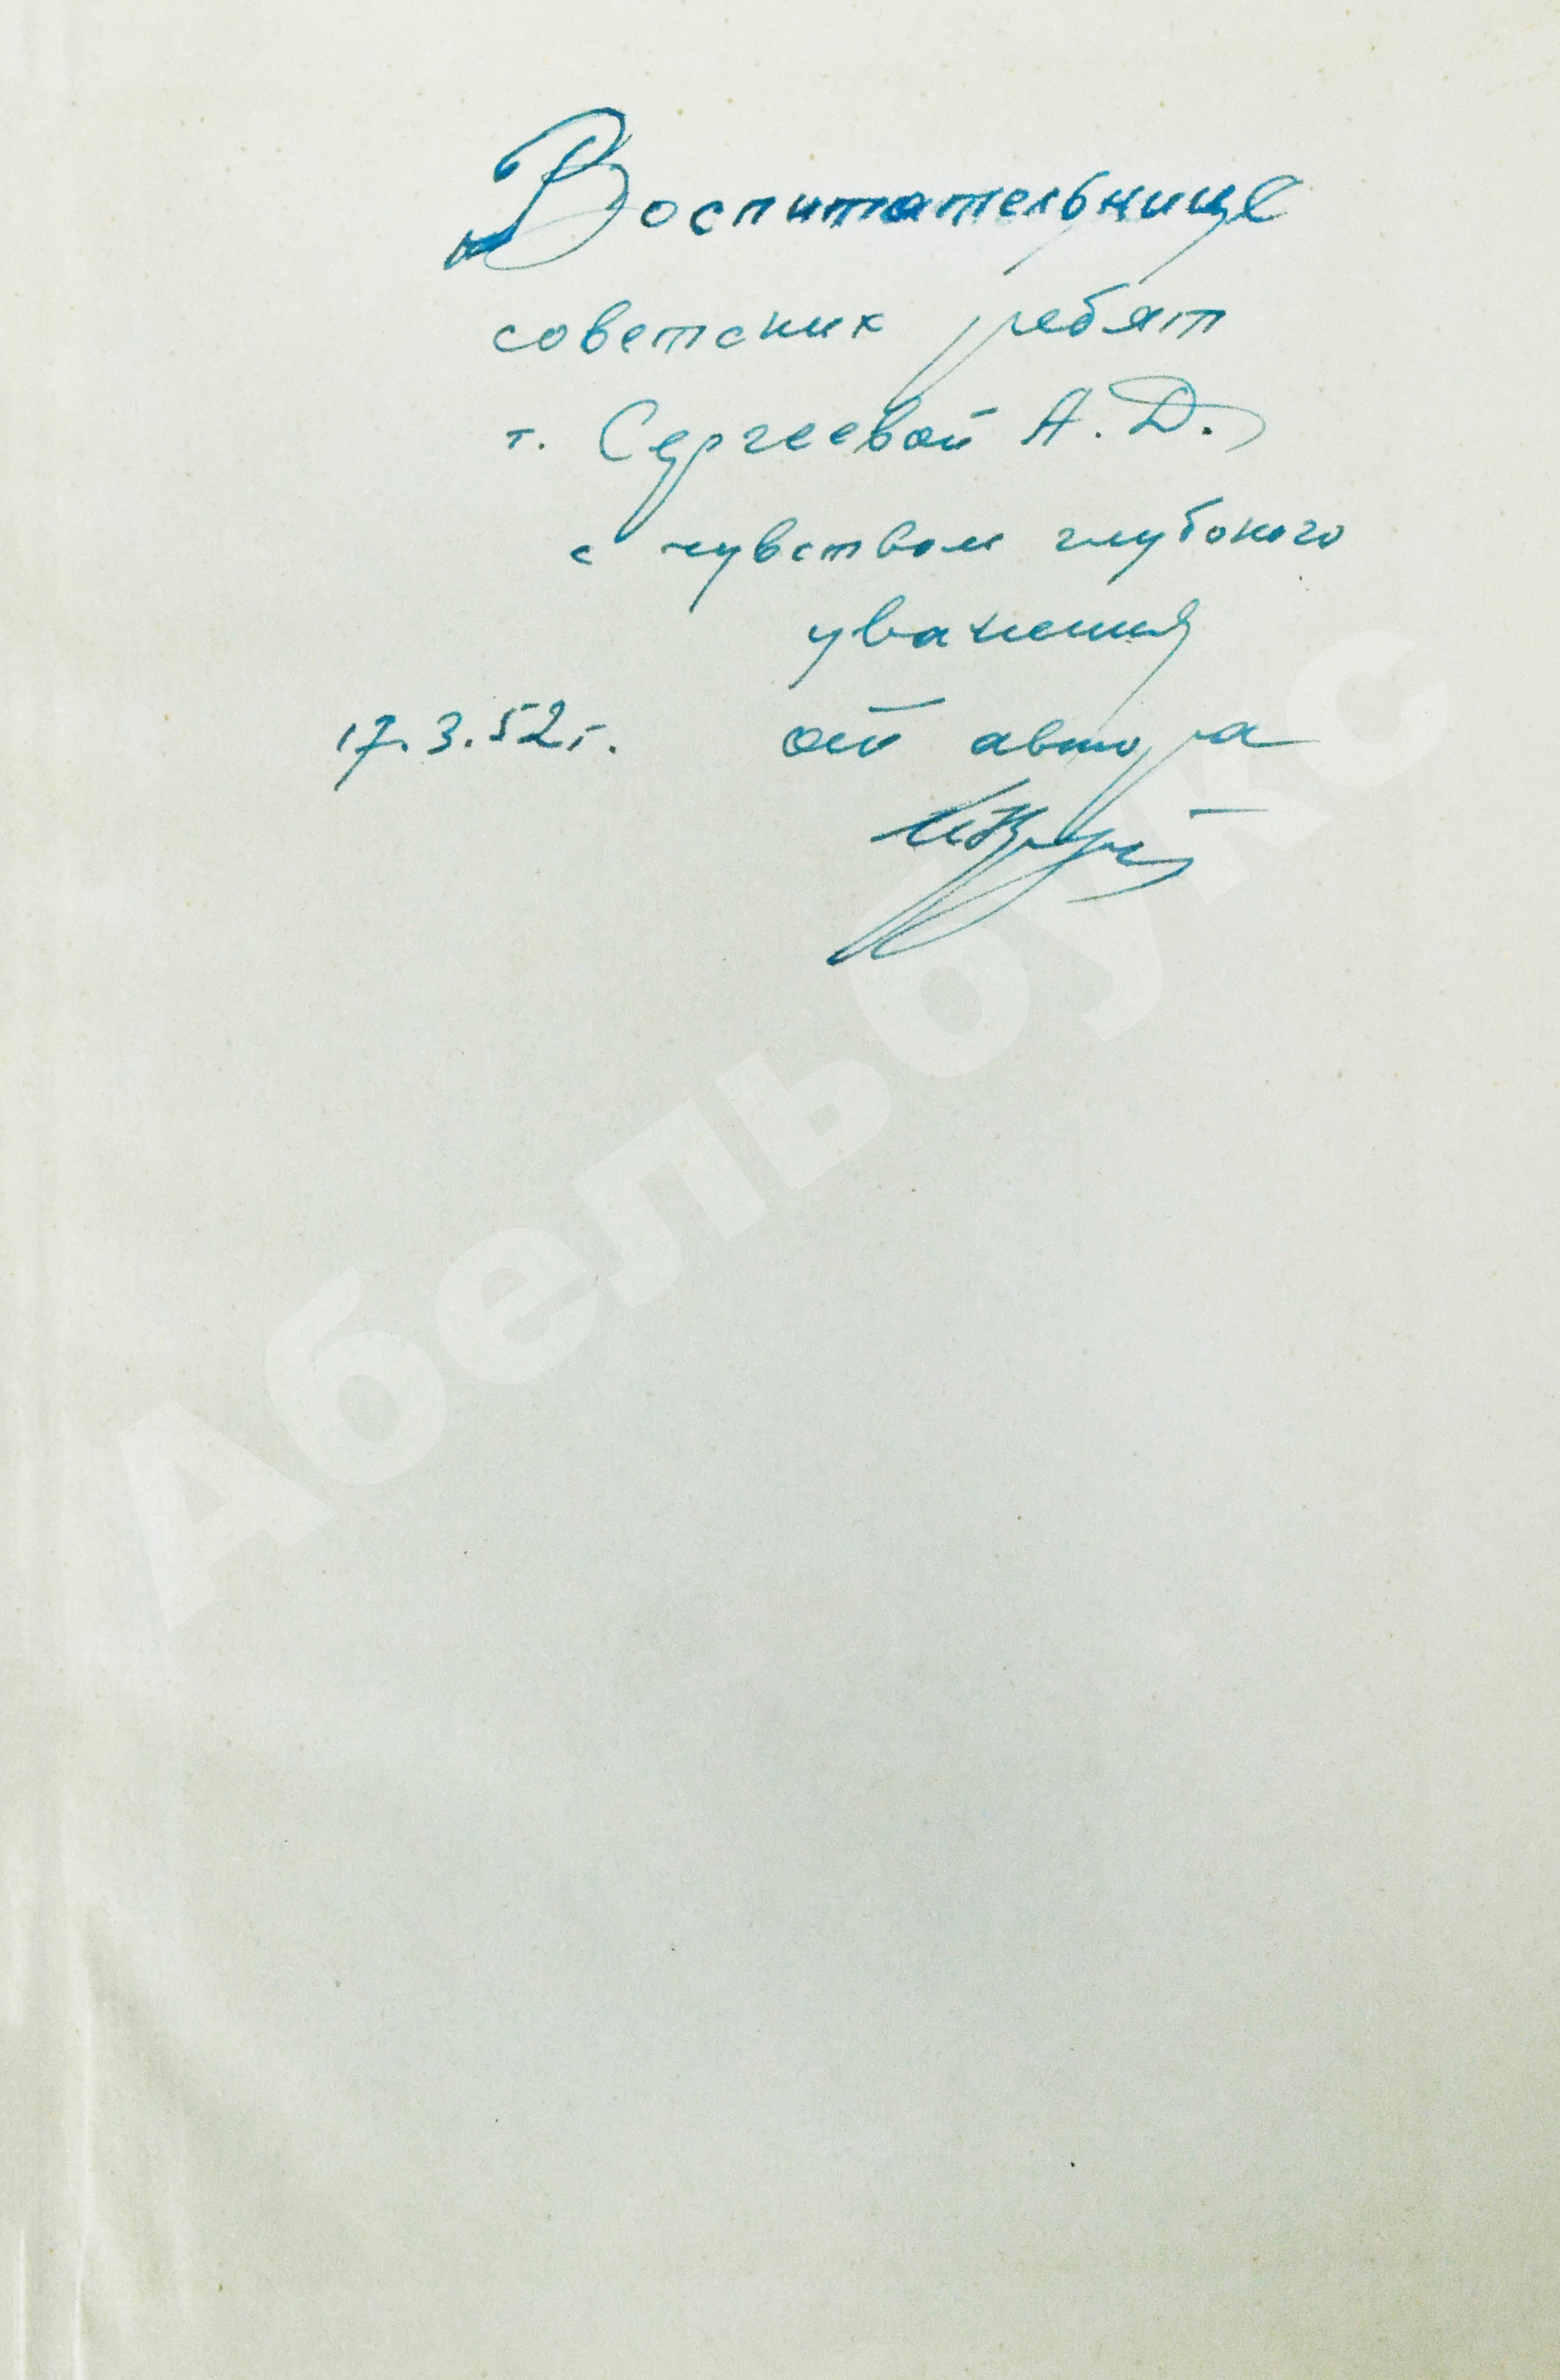 Воспитательнице
советских ребят
т. Сергеевой А. Д.
с чувством глубокого
уважения
17.3.52г. от автора
Абельбукс